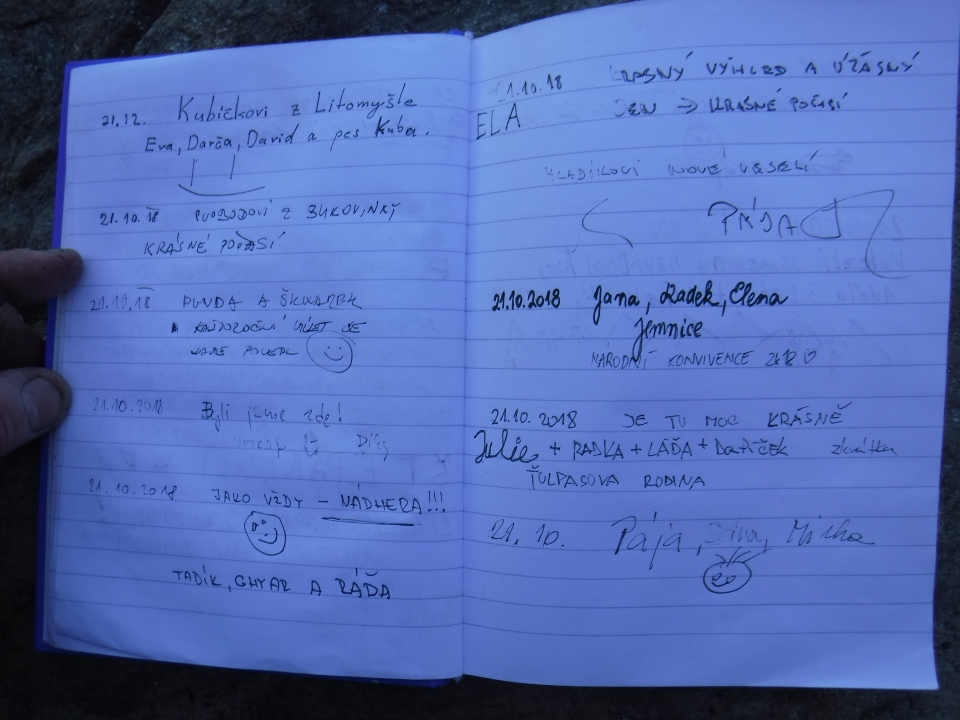 21.12. Kubíčkovi z Litomyšle
Eva, Darča, David a pes Kuba.
21.10.18 z
KRÁSNÉ POČASÍ
21.10.18 PUNDA A ŠKVAREK
KAŽDOROČNÍ VÝLET SE
21.10.2018 Byli jsme zde!
21.10.2018 JAKO VŽDY – NÁDHERA!!!
TADÍK, A RÁĎA
21.10.18 KRASNÝ VÝHLED A ÚŽASNÝ
ELA DEN → KRÁSNÉ POČASÍ
HLADÍKOVI NOVÉ VESELÍ
PÁJA
21.10.2018 Jana, Radek, Elena
Jemnice
NÁRODNÍ KONVIVENCE 2k18 ♡
21.10.2018 JE TU MOC KRÁSNĚ
Julie + RADKA + LÁĎA + zkrátka
ŤULPASOVA RODINA
21.10. Pája, Mirka